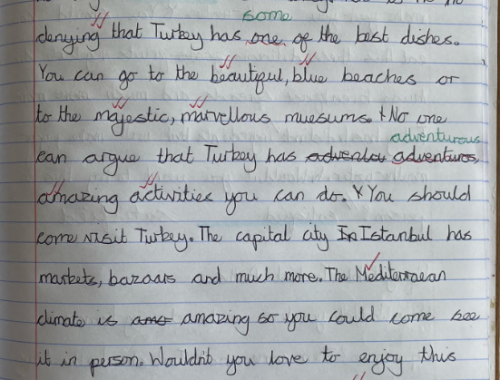 some
denying that Turkey has one of the best dishes.
You can go to the beautiful, blue beaches or
to the majestic, marvellous muesums. No one
adventurous
can argue that Turkey has adventures,
amazing activities you can do. You should
come visit Turkey. The capital city Istanbul has
markets, bazaars and much more. The Mediterraean
climate is amazing so you could come see
it in person. Wouldn't you love to enjoy this